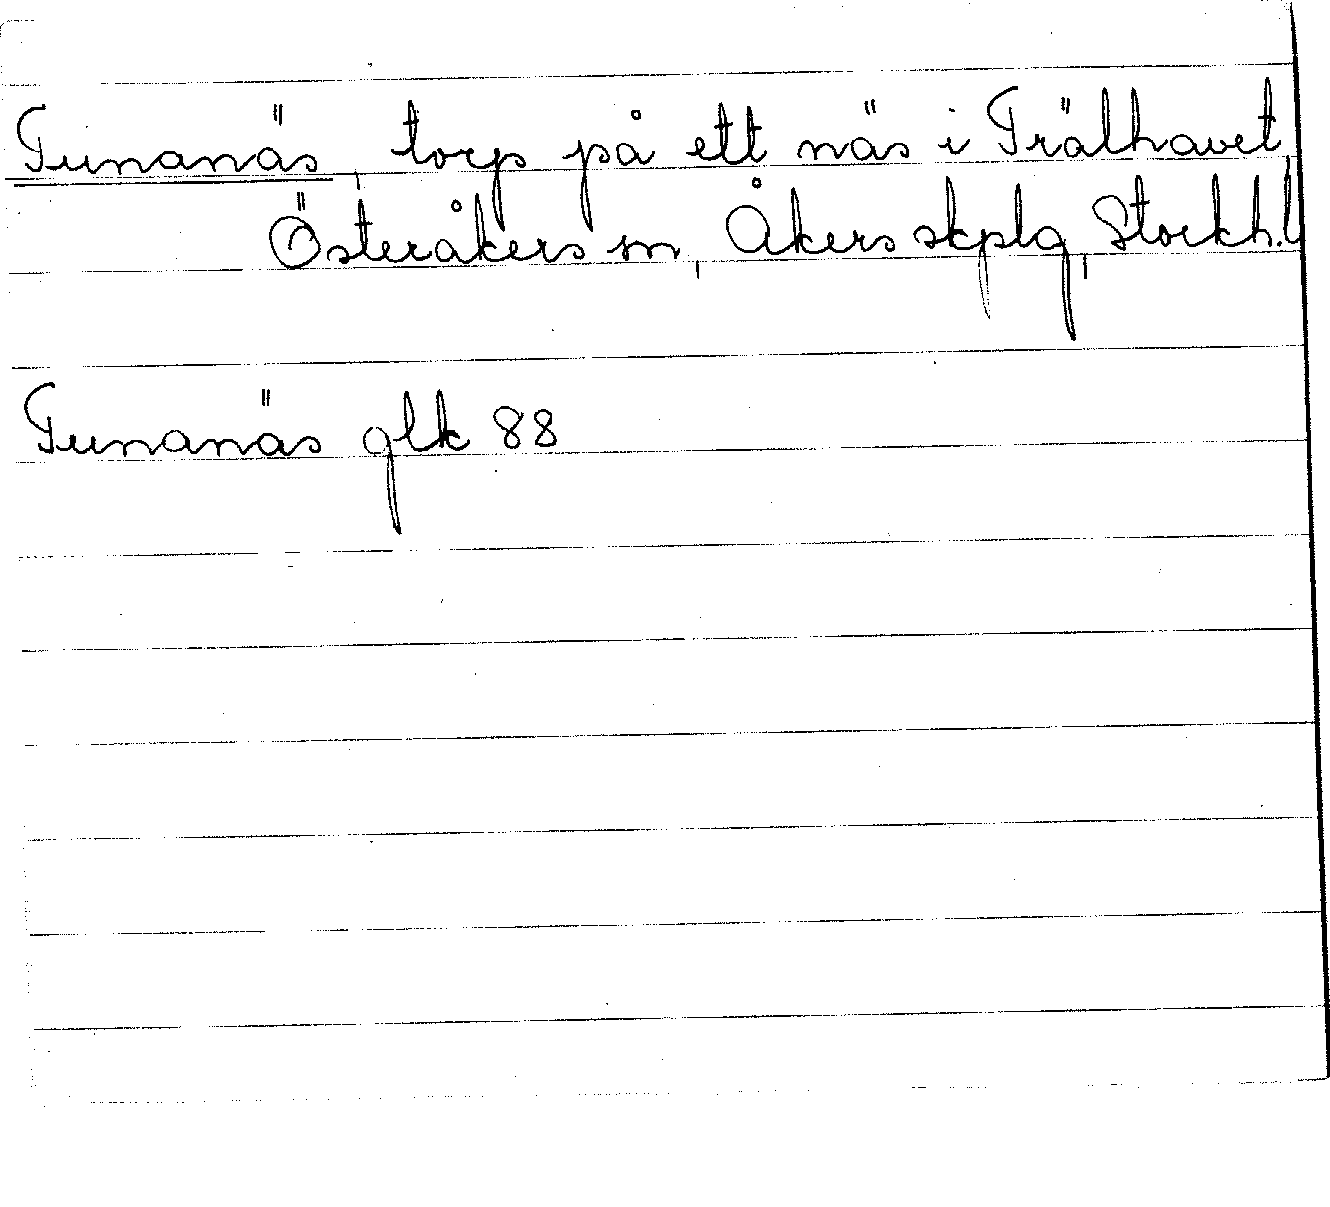 Tunanäs, torp på ett näs i Trälhavet,
Österåkers sn, Åkers skplg, Stockh.l
Tunanäs glk 88